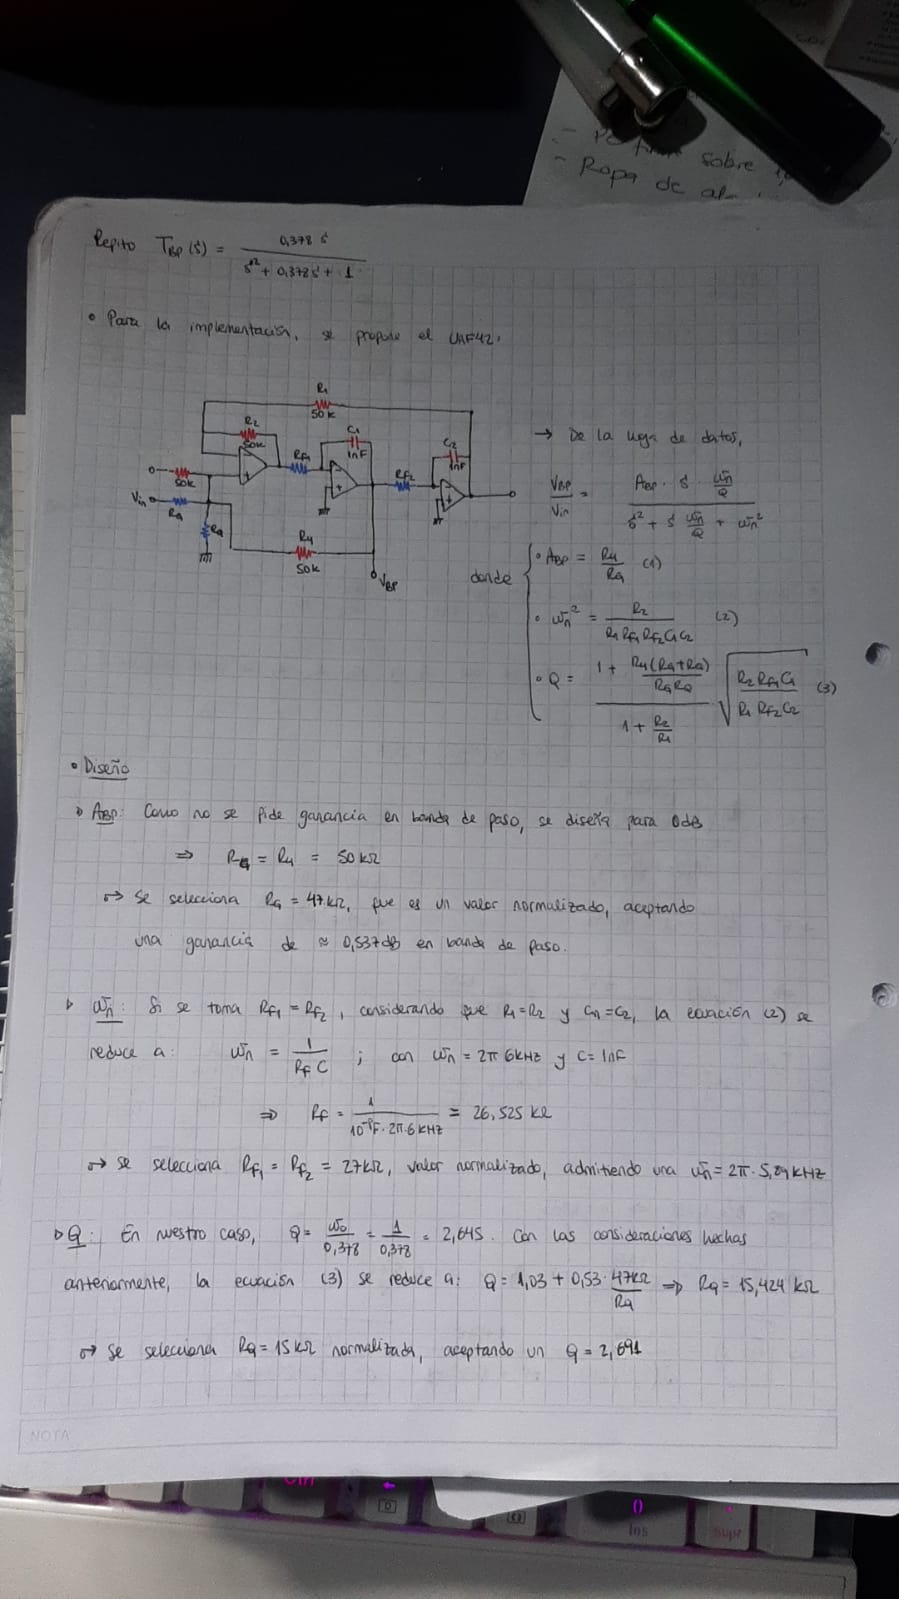 - Po
sobre
- Ropa de al
Repito T_BP(s) = 0,378 s / (s² + 0,378 s + 1)
• Para la implementación, se propone el UAF42.
R1
50k
R2
50k
C1
1nF
C2
1nF
RF1
RF2
50k
Vin
RG
RQ
R4
50k
VBP
→ De la hoja de datos,
VBP / Vin = (ABP · s · ωn/Q) / (s² + s ωn/Q + ωn²)
donde
• ABP = R4 / RG (1)
• ωn² = R2 / (R1 RF1 RF2 C1 C2) (2)
• Q = (1 + R4(RG+RQ) / (RG RQ)) / (1 + R2/R1) √(R2 RF1 C1 / (R1 RF2 C2)) (3)
• Diseño
▷ ABP: Como no se pide ganancia en banda de paso, se diseña para 0dB
⇒ RG = R4 = 50 kΩ
↦ Se selecciona RG = 47kΩ, que es un valor normalizado, aceptando
una ganancia de ≈ 0,537dB en banda de paso.
▷ ωn: Si se toma RF1 = RF2, considerando que R1=R2 y C1=C2, la ecuación (2) se
reduce a: ωn = 1 / (RF C) ; con ωn = 2π 6kHz y C = 1nF
⇒ RF = 1 / (10⁻⁹F · 2π · 6kHz) = 26,525 kΩ
↦ se selecciona RF1 = RF2 = 27kΩ, valor normalizado, admitiendo una ωn = 2π · 5,89 kHz
▷ Q: En nuestro caso, Q = ω0 / 0,378 = 1 / 0,378 = 2,645. Con las consideraciones hechas
anteriormente, la ecuación (3) se reduce a: Q = 1,03 + 0,53 · 47kΩ / RQ ⇒ RQ = 15,424 kΩ
↦ Se selecciona RQ = 15 kΩ normalizada, aceptando un Q = 2,691
NOTA
Ctrl
()
Ins
Supr